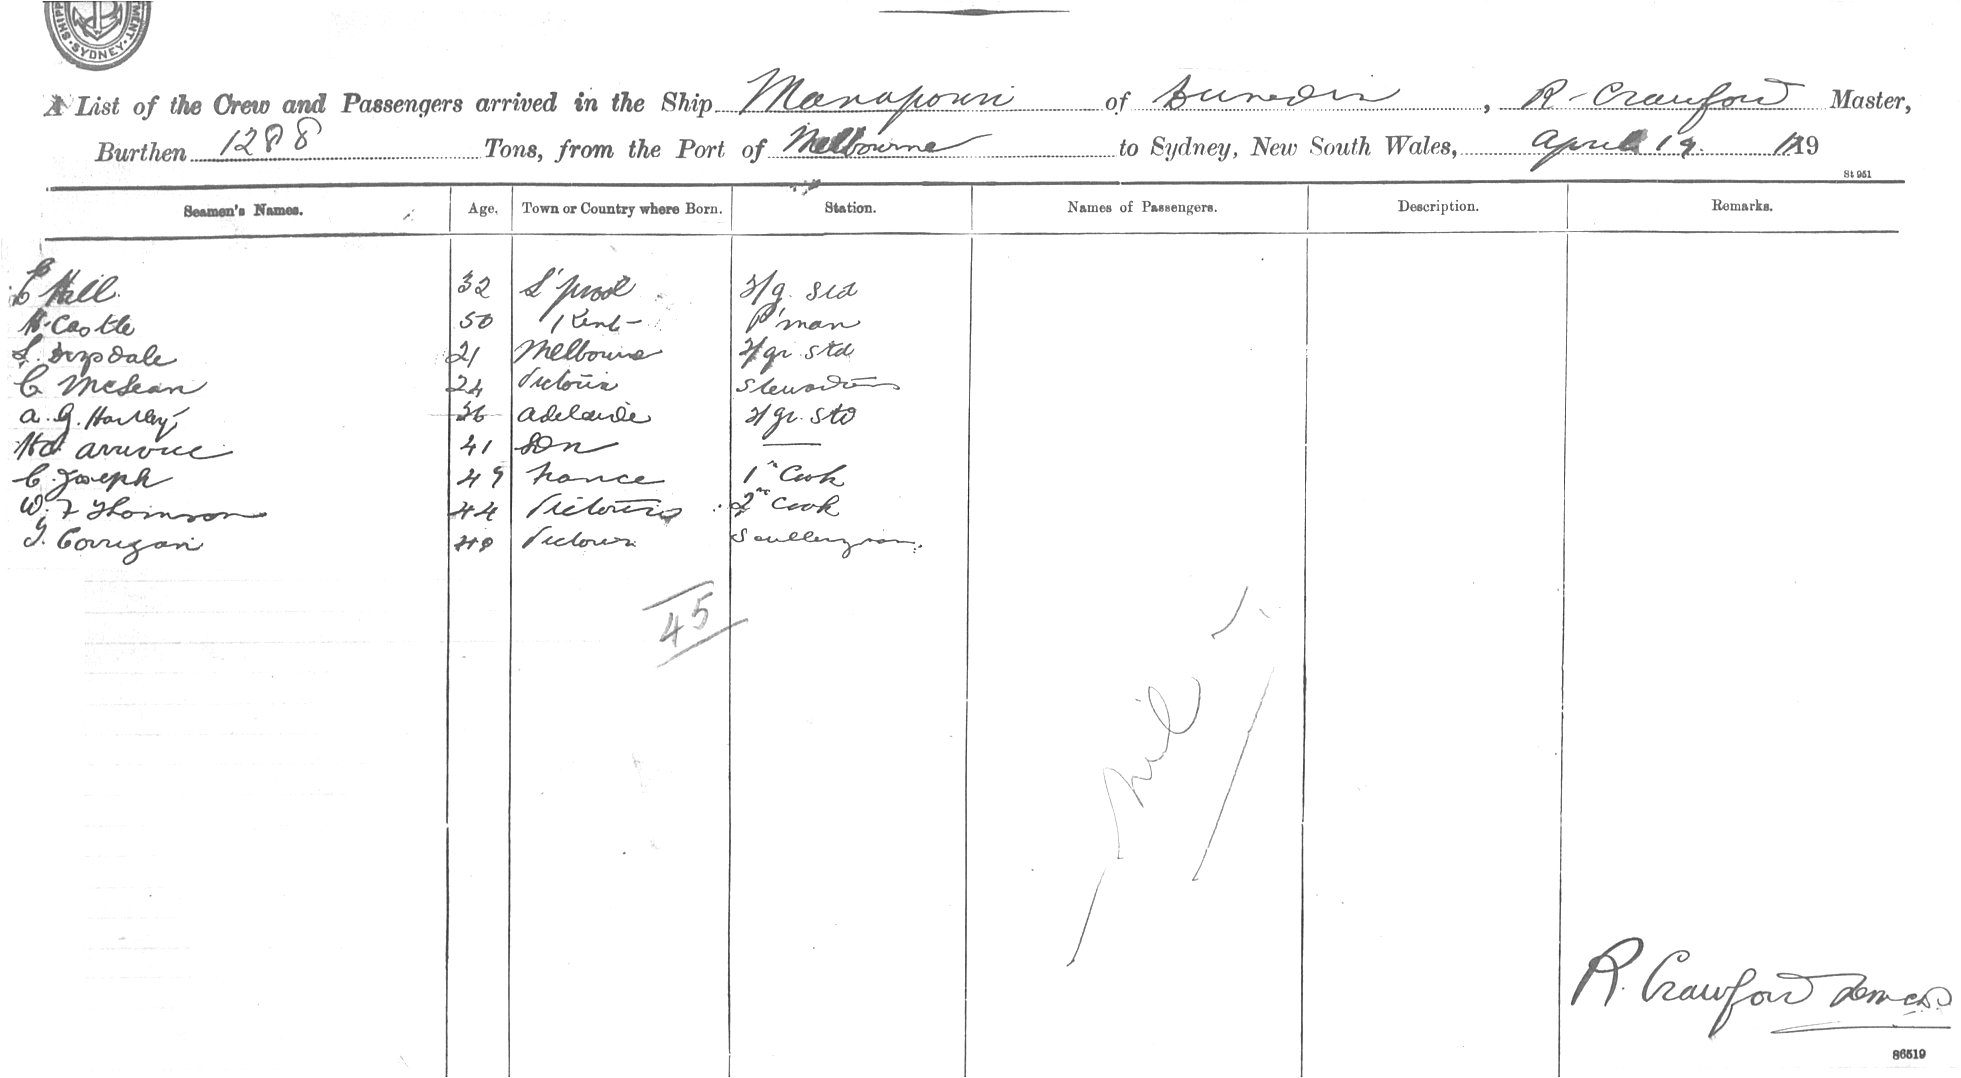 SHIPP · SYDNEY · MENT
A List of the Crew and Passengers arrived in the Ship Manapouri of Dunedin, R. Crawford Master,
Burthen 1288 Tons, from the Port of Melbourne to Sydney, New South Wales, April 19. 1919
St 951
Seamen's Names. Age. Town or Country where Born. Station. Names of Passengers. Description. Remarks.
Hall 32 L'pool 2/gr. Std
H. Castle 50 Kent P'man
L. Drysdale 21 Melbourne 2/gr. Std
C McLean 24 Victoria
A. G. Hartley 36 Adelaide 2/gr. Std
41 Ldn —
C. Joseph 49 France 1st Cook
W. F Thomson 44 Victoria 2nd Cook
J. Corrigan 40 Victoria Sculleryman.
45
Nil
R. Crawford
86519